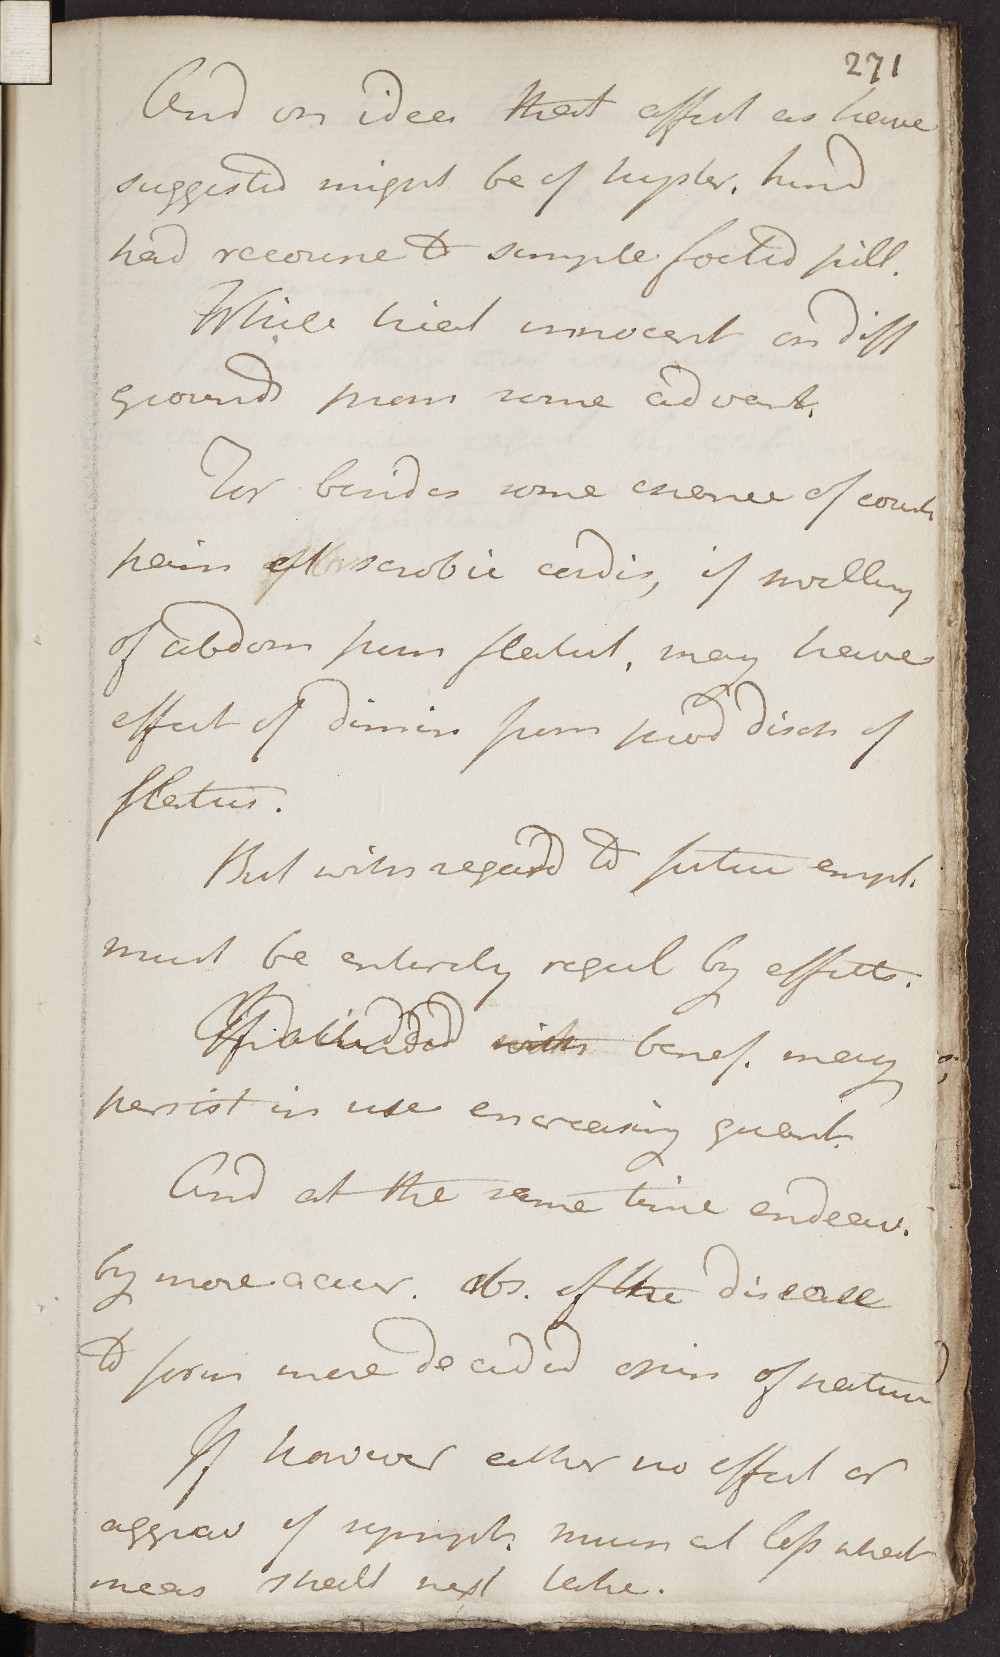 271
And on idea that effect as have
suggested might be of hyster. kind
had recourse to simple foetid pill.
While trial innocent on diff
grounds prom some advant.
For besides some essence of
pain of scrobic cordis, if swelling
of abdom from flatul, may have
effect of dimin from prod disch of
flatus.
But with regard to future empl.
must be enterely regul by effects.
If attended with benef. may
persist in use encreasing quant.
And at the same time endeav.
by more accur. obs. of the disease
to form more decided opin of nature
If however either no effect or
aggrav of sympt. much at loss what
meas shall next take.